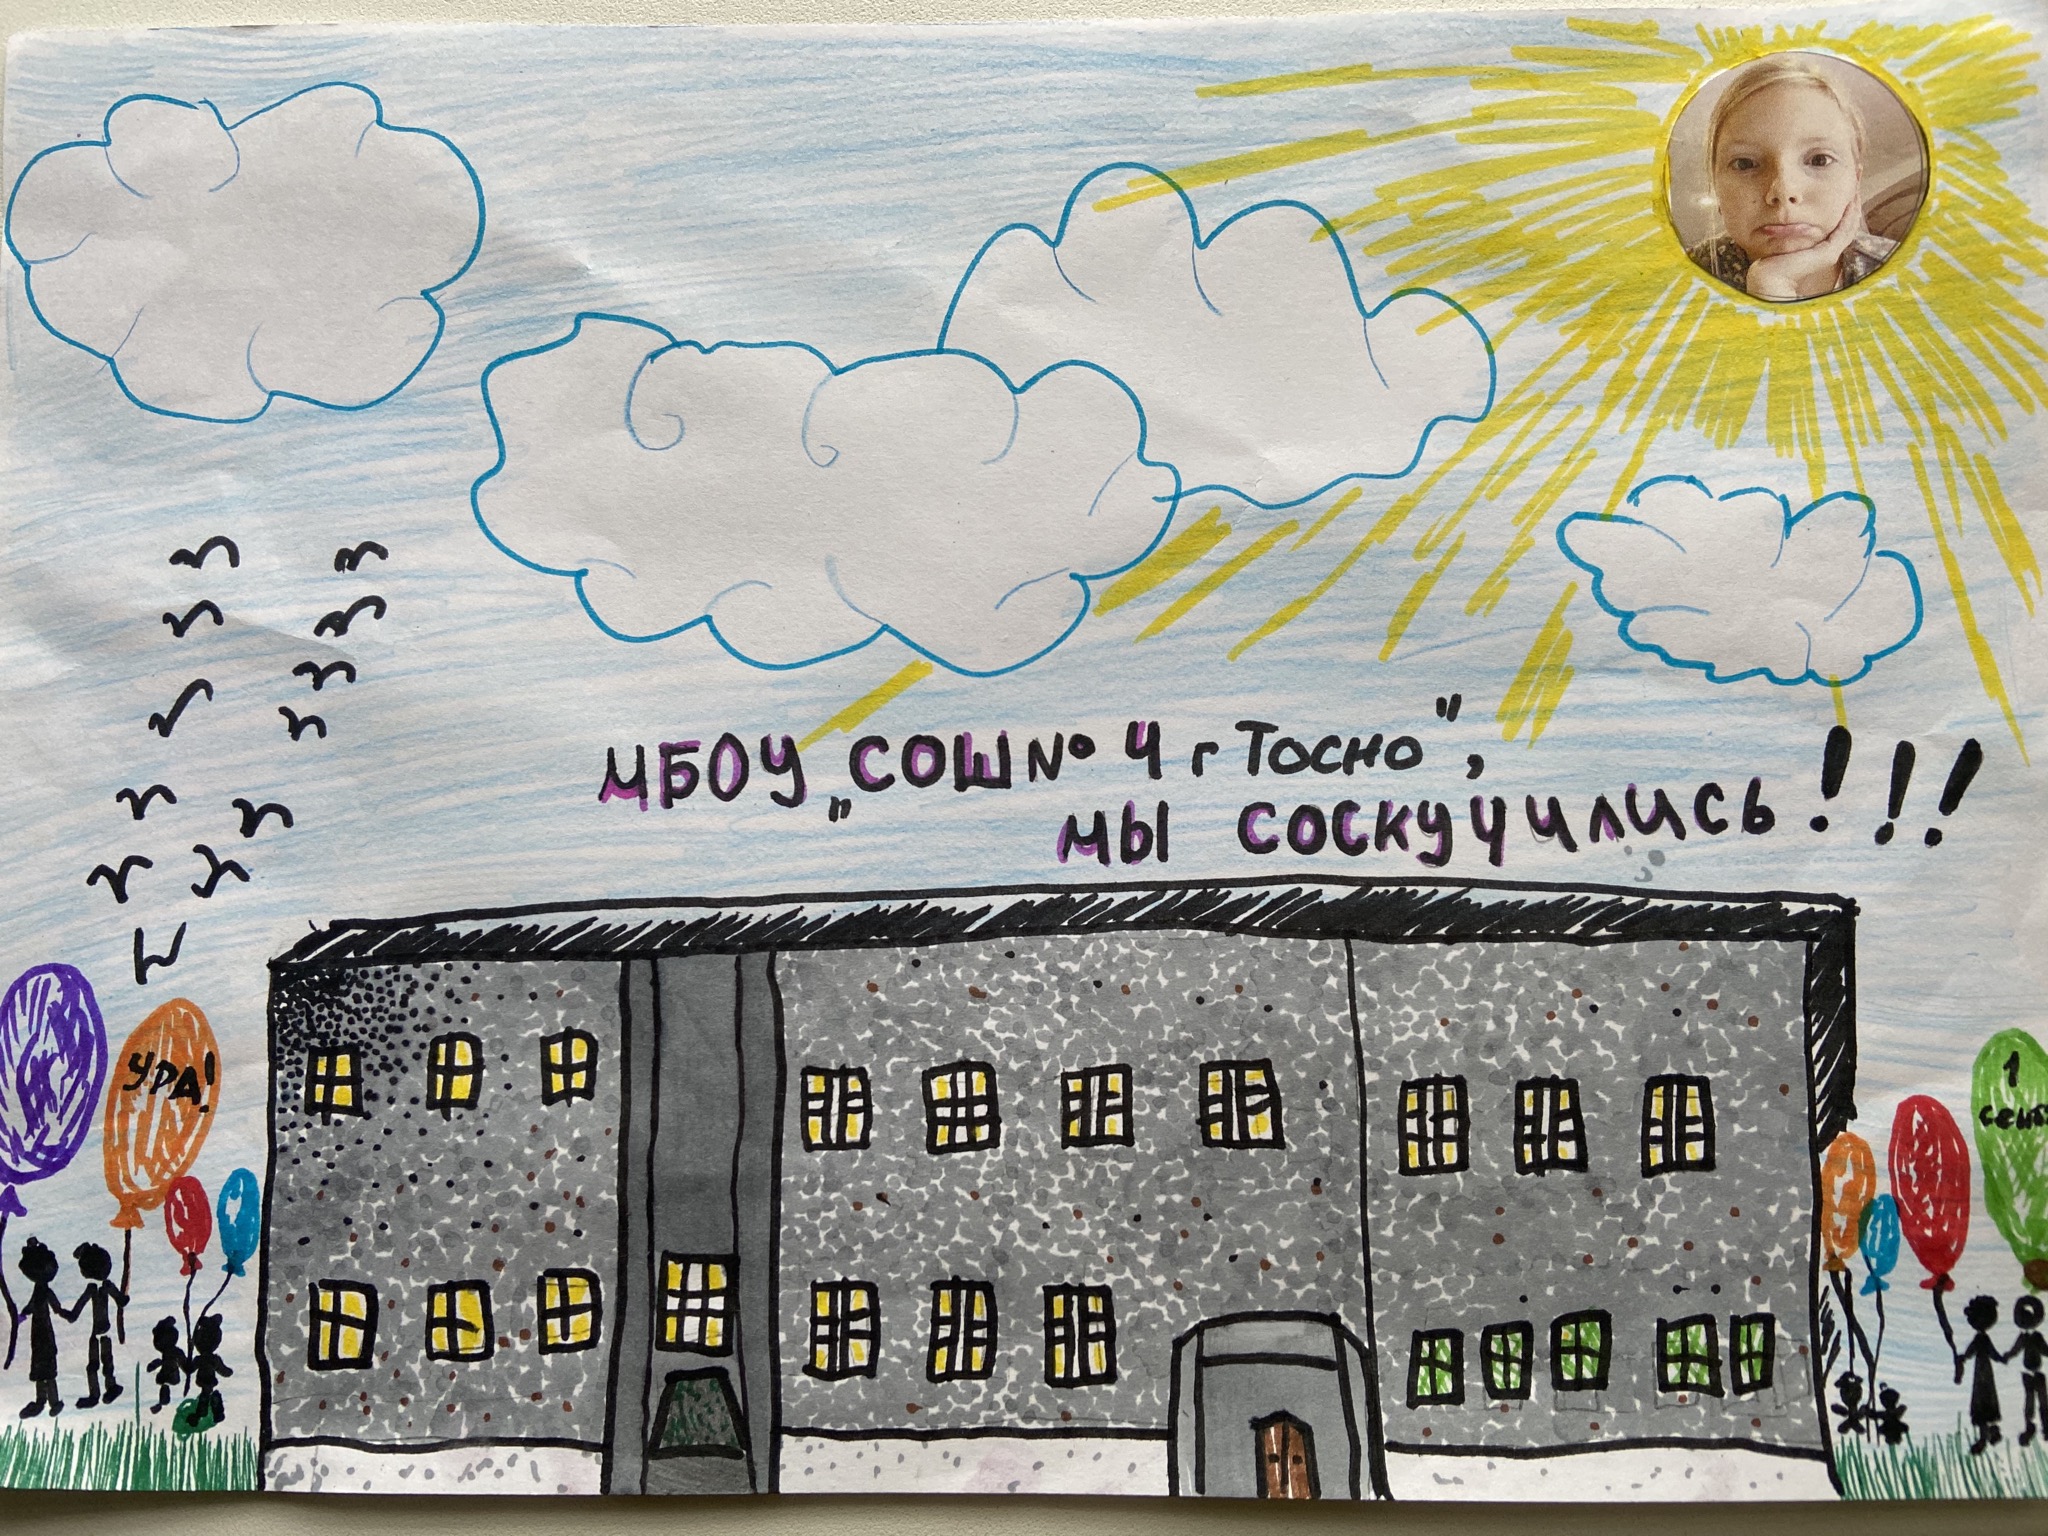 МБОУ "СОШ № 4 г Тосно",
мы соскучились!!!
УРА!
1